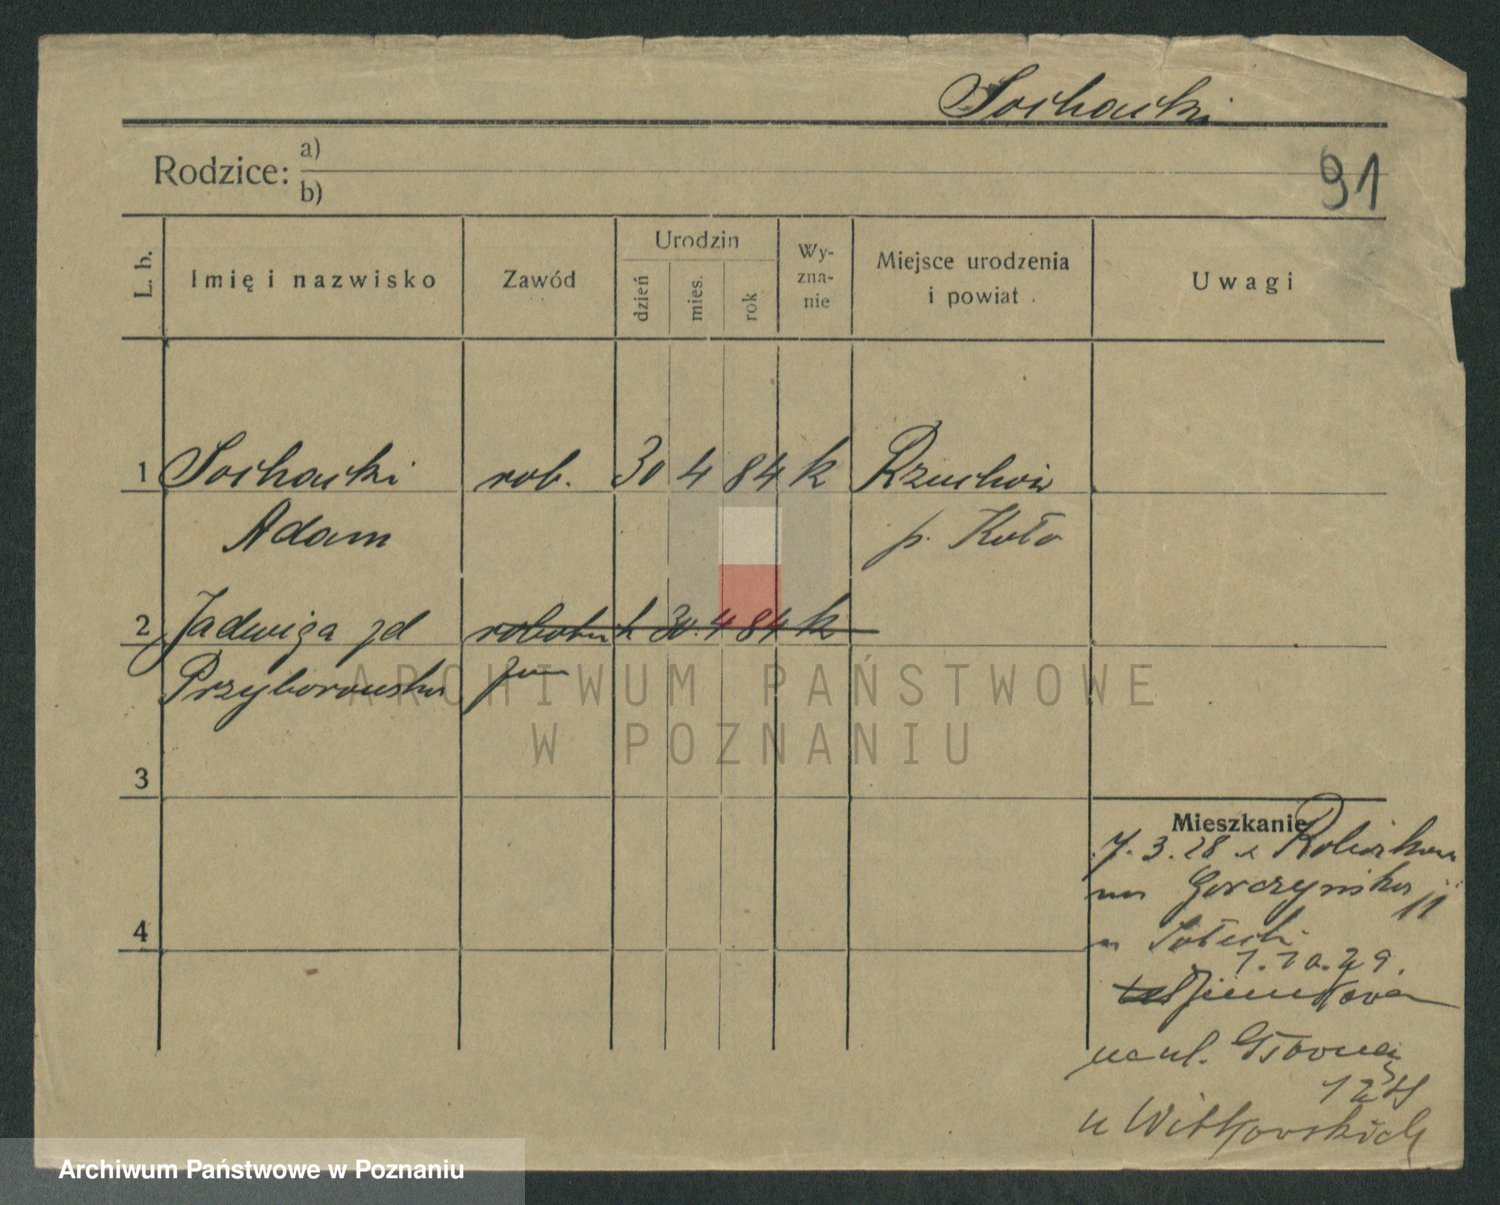 Sochacki
91
Rodzice: a)
b)
L. b.
Imię i nazwisko
Zawód
Urodzin
dzień
mies.
rok
Wy-
zna-
nie
Miejsce urodzenia
i powiat
Uwagi
1 Sochacki rob. 30 4 84 k Rzuchów
Adam p. Koło
2 Jadwiga zd 30. 4 84 k
Przyborowska
3
4
Mieszkanie
7. 3. 28 z
na Gorczyńska 11
u
1. 10. 29.
na ul. Główną
u Witkowskich
ARCHIWUM PAŃSTWOWE
W POZNANIU
Archiwum Państwowe w Poznaniu